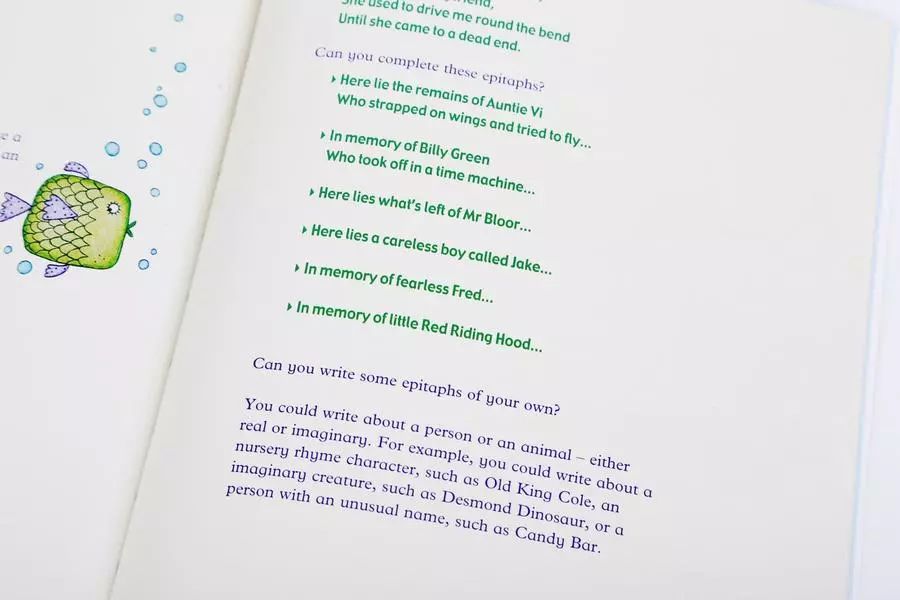 e a
an
She used to drive me round the bend
Until she came to a dead end.
Can you complete these epitaphs?
Here lie the remains of Auntie Vi
Who strapped on wings and tried to fly...
In memory of Billy Green
Who took off in a time machine...
Here lies what's left of Mr Bloor...
Here lies a careless boy called Jake...
In memory of fearless Fred...
In memory of little Red Riding Hood...
Can you write some epitaphs of your own?
You could write about a person or an animal – either
real or imaginary. For example, you could write about a
nursery rhyme character, such as Old King Cole, an
imaginary creature, such as Desmond Dinosaur, or a
person with an unusual name, such as Candy Bar.